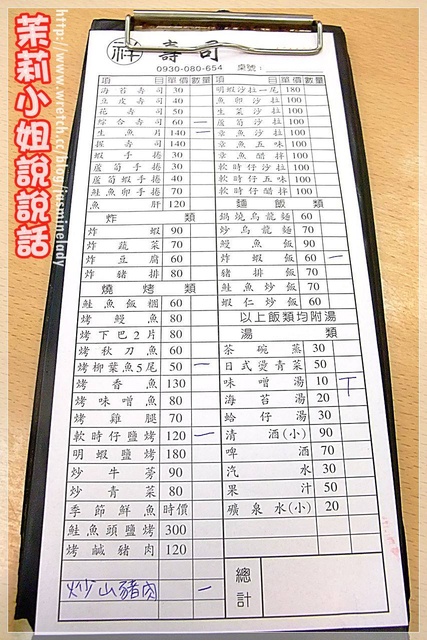 茉莉小姐說說話
http://www.wretch.cc/blog/jasminelady
祥 壽司
0930-080-654 桌號:
項目 單價 數量 項目 單價 數量
海苔壽司 30
豆皮壽司 40
花壽司 50
綜合壽司 60 一
生魚片 140 一
握壽司 140
蝦手捲 30
蘆筍手捲 30
蘆筍蝦手捲 40
鮭魚卵手捲 70
魚肝 120
炸類
炸蝦 90
炸蔬菜 70
炸豆腐 60
炸豬排 80
燒烤類
鮭魚飯糰 60
烤鰻魚 80
烤下巴2片 80
烤秋刀魚 60
烤柳葉魚5尾 50 一
烤香魚 130
烤味噌魚 80
烤雞腿 70
軟時仔鹽烤 120 一
明蝦鹽烤 180
炒牛蒡 90
炒青菜 80
季節鮮魚 時價
鮭魚頭鹽烤 300
烤鹹豬肉 120
炒山豬肉 一
明蝦沙拉一尾 180
魚卵沙拉 100
生菜沙拉 100
蘆筍沙拉 100
章魚沙拉 100
章魚五味 100
章魚醋拌 100
軟時仔沙拉 100
軟時仔五味 100
軟時仔醋拌 100
麵飯類
鍋燒烏龍麵 60
炒烏龍麵 70
鰻魚飯 90
炸蝦飯 60 一
豬排飯 70
鮭魚炒飯 70
蝦仁炒飯 60
以上飯類均附湯
湯類
茶碗蒸 30
日式燙青菜 50
味噌湯 10 丅
海苔湯 20
蛤仔湯 30
清酒(小) 90
啤酒 70
汽水 30
果汁 50
礦泉水(小) 20
總計